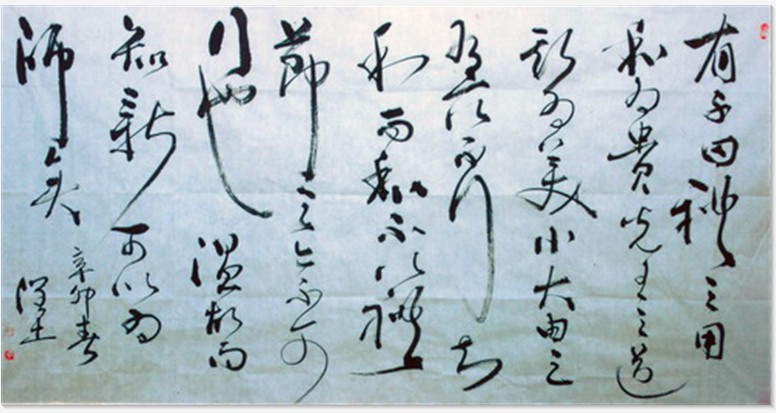 有子曰禮之用
和為貴先王之道
斯為美小大由之
有所不行知
和而和不以禮
節之亦不可
行也溫故而
知新可以為
師矣
辛卯春